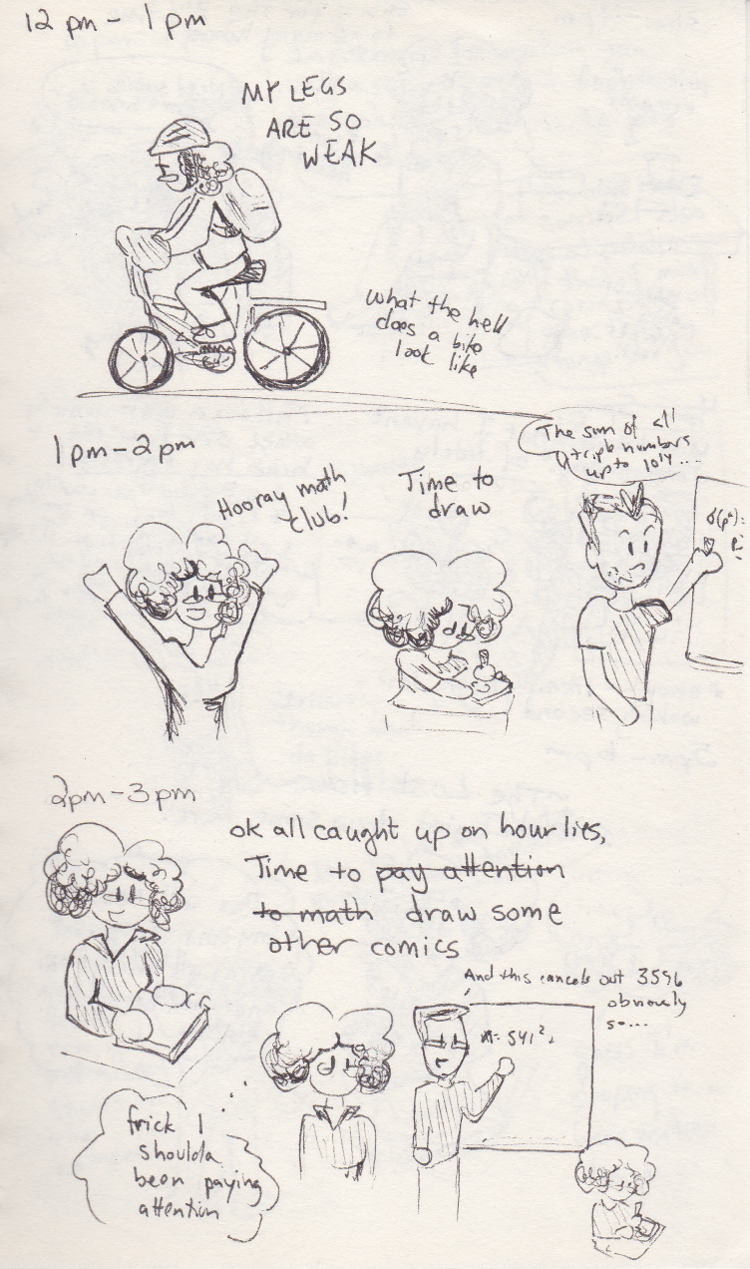 12 pm - 1 pm
MY LEGS
ARE SO
WEAK
what the hell
does a bike
look like
1pm-2pm
Hooray math
club!
Time to
draw
The sum of all
triple numbers
up to 1014...
2pm-3pm
ok all caught up on hourlies,
Time to pay attention
to math draw some
other comics
And this cancels out 3596
obviously
so...
n = 541²,
frick I
shoulda
been paying
attention